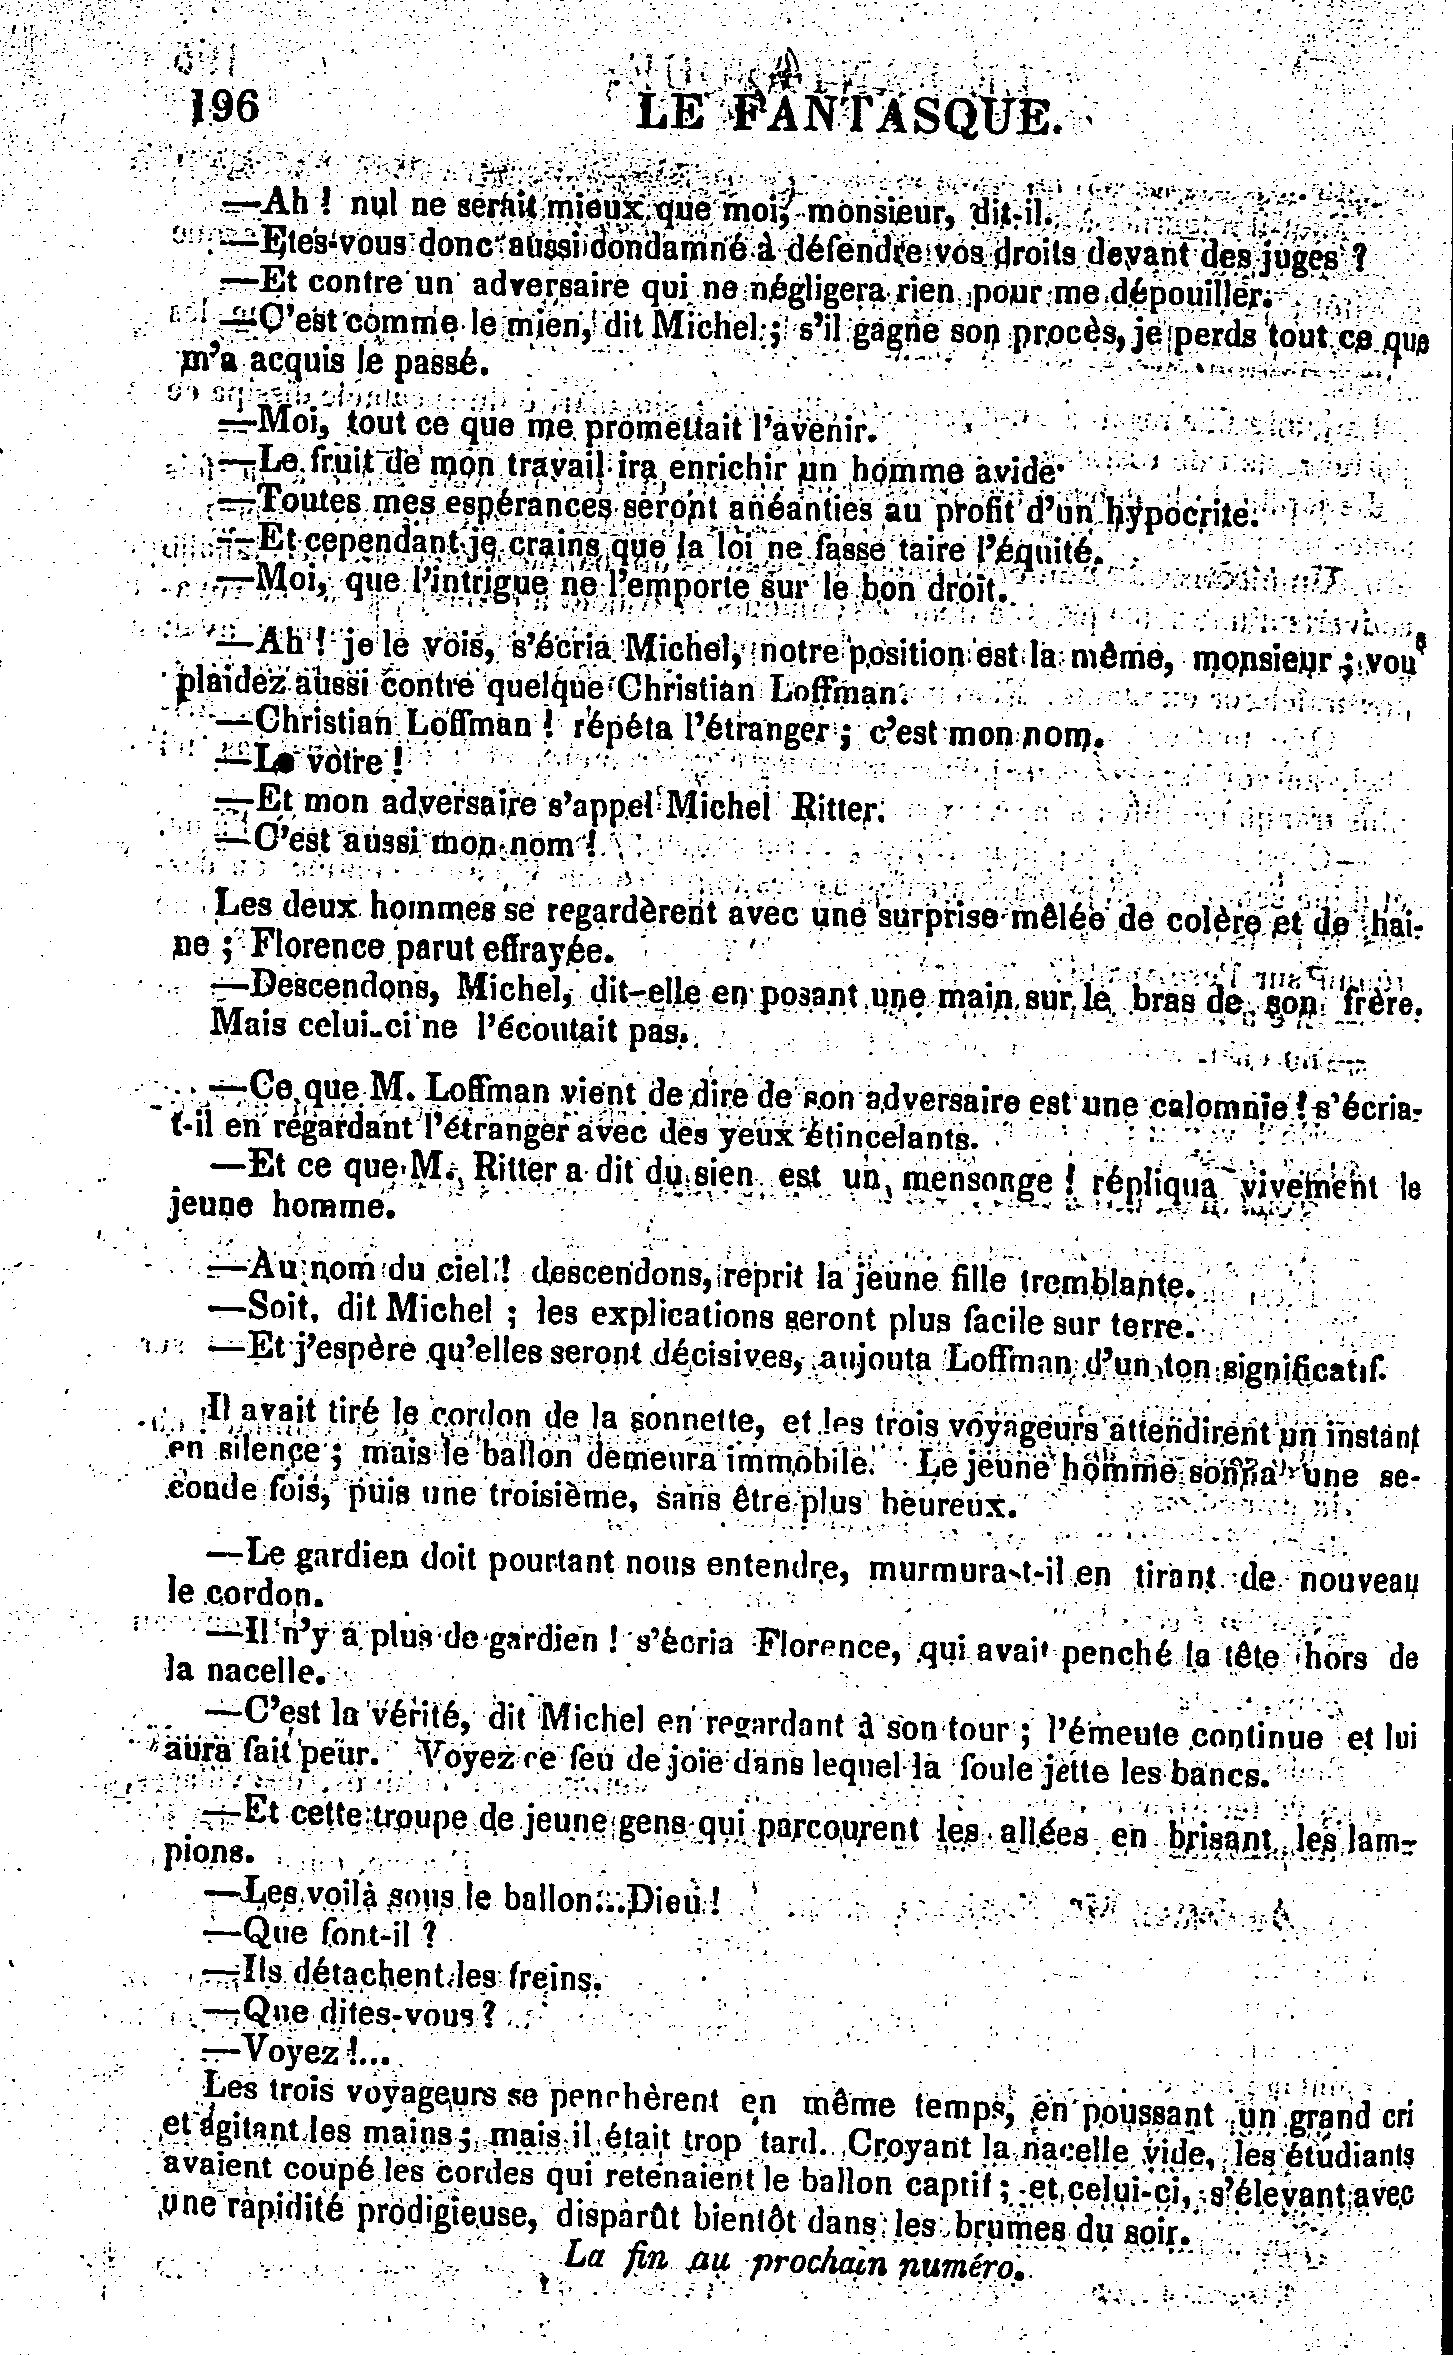 196
LE FANTASQUE.
—Ah ! nul ne serait mieux que moi, monsieur, dit-il.
—Etes-vous donc aussi condamné à défendre vos droits devant des juges ?
—Et contre un adversaire qui ne négligera rien pour me dépouiller.
—C'est comme le mien, dit Michel ; s'il gagne son procès, je perds tout ce que
m'a acquis le passé.
—Moi, tout ce que me promettait l'avenir.
—Le fruit de mon travail ira enrichir un homme avide
—Toutes mes espérances seront anéanties au profit d'un hypocrite.
—Et cependant je crains que la loi ne fasse taire l'équité.
—Moi, que l'intrigue ne l'emporte sur le bon droit.
—Ah ! je le vois, s'écria Michel, notre position est la même, monsieur ; vous
plaidez aussi contre quelque Christian Loffman.
—Christian Loffman ! répéta l'étranger ; c'est mon nom.
—Le vôtre !
—Et mon adversaire s'appel Michel Ritter.
—C'est aussi mon nom !
Les deux hommes se regardèrent avec une surprise mêlée de colère et de hai-
ne ; Florence parut effrayée.
—Descendons, Michel, dit-elle en posant une main sur le bras de son frère.
Mais celui-ci ne l'écoutait pas.
—Ce que M. Loffman vient de dire de son adversaire est une calomnie ! s'écria-
t-il en regardant l'étranger avec des yeux étincelants.
—Et ce que M. Ritter a dit du sien est un mensonge ! répliqua vivement le
jeune homme.
—Au nom du ciel ! descendons, reprit la jeune fille tremblante.
—Soit, dit Michel ; les explications seront plus facile sur terre.
—Et j'espère qu'elles seront décisives, aujouta Loffman d'un ton significatif.
Il avait tiré le cordon de la sonnette, et les trois voyageurs attendirent un instant
en silence ; mais le ballon demeura immobile. Le jeune homme sonna une se-
conde fois, puis une troisième, sans être plus heureux.
—Le gardien doit pourtant nous entendre, murmura-t-il en tirant de nouveau
le cordon.
—Il n'y a plus de gardien ! s'écria Florence, qui avait penché la tête hors de
la nacelle.
—C'est la vérité, dit Michel en regardant à son tour ; l'émeute continue et lui
aura fait peur. Voyez ce feu de joie dans lequel la foule jette les bancs.
—Et cette troupe de jeune gens qui parcourent les allées en brisant les lam-
pions.
—Les voilà sous le ballon...Dieu !
—Que font-il ?
—Ils détachent les freins.
—Que dites-vous ?
—Voyez !...
Les trois voyageurs se penchèrent en même temps, en poussant un grand cri
et agitant les mains ; mais il était trop tard. Croyant la nacelle vide, les étudiants
avaient coupé les cordes qui retenaient le ballon captif ; et celui-ci, s'élevant avec
une rapidité prodigieuse, disparût bientôt dans les brumes du soir.
La fin au prochain numéro.